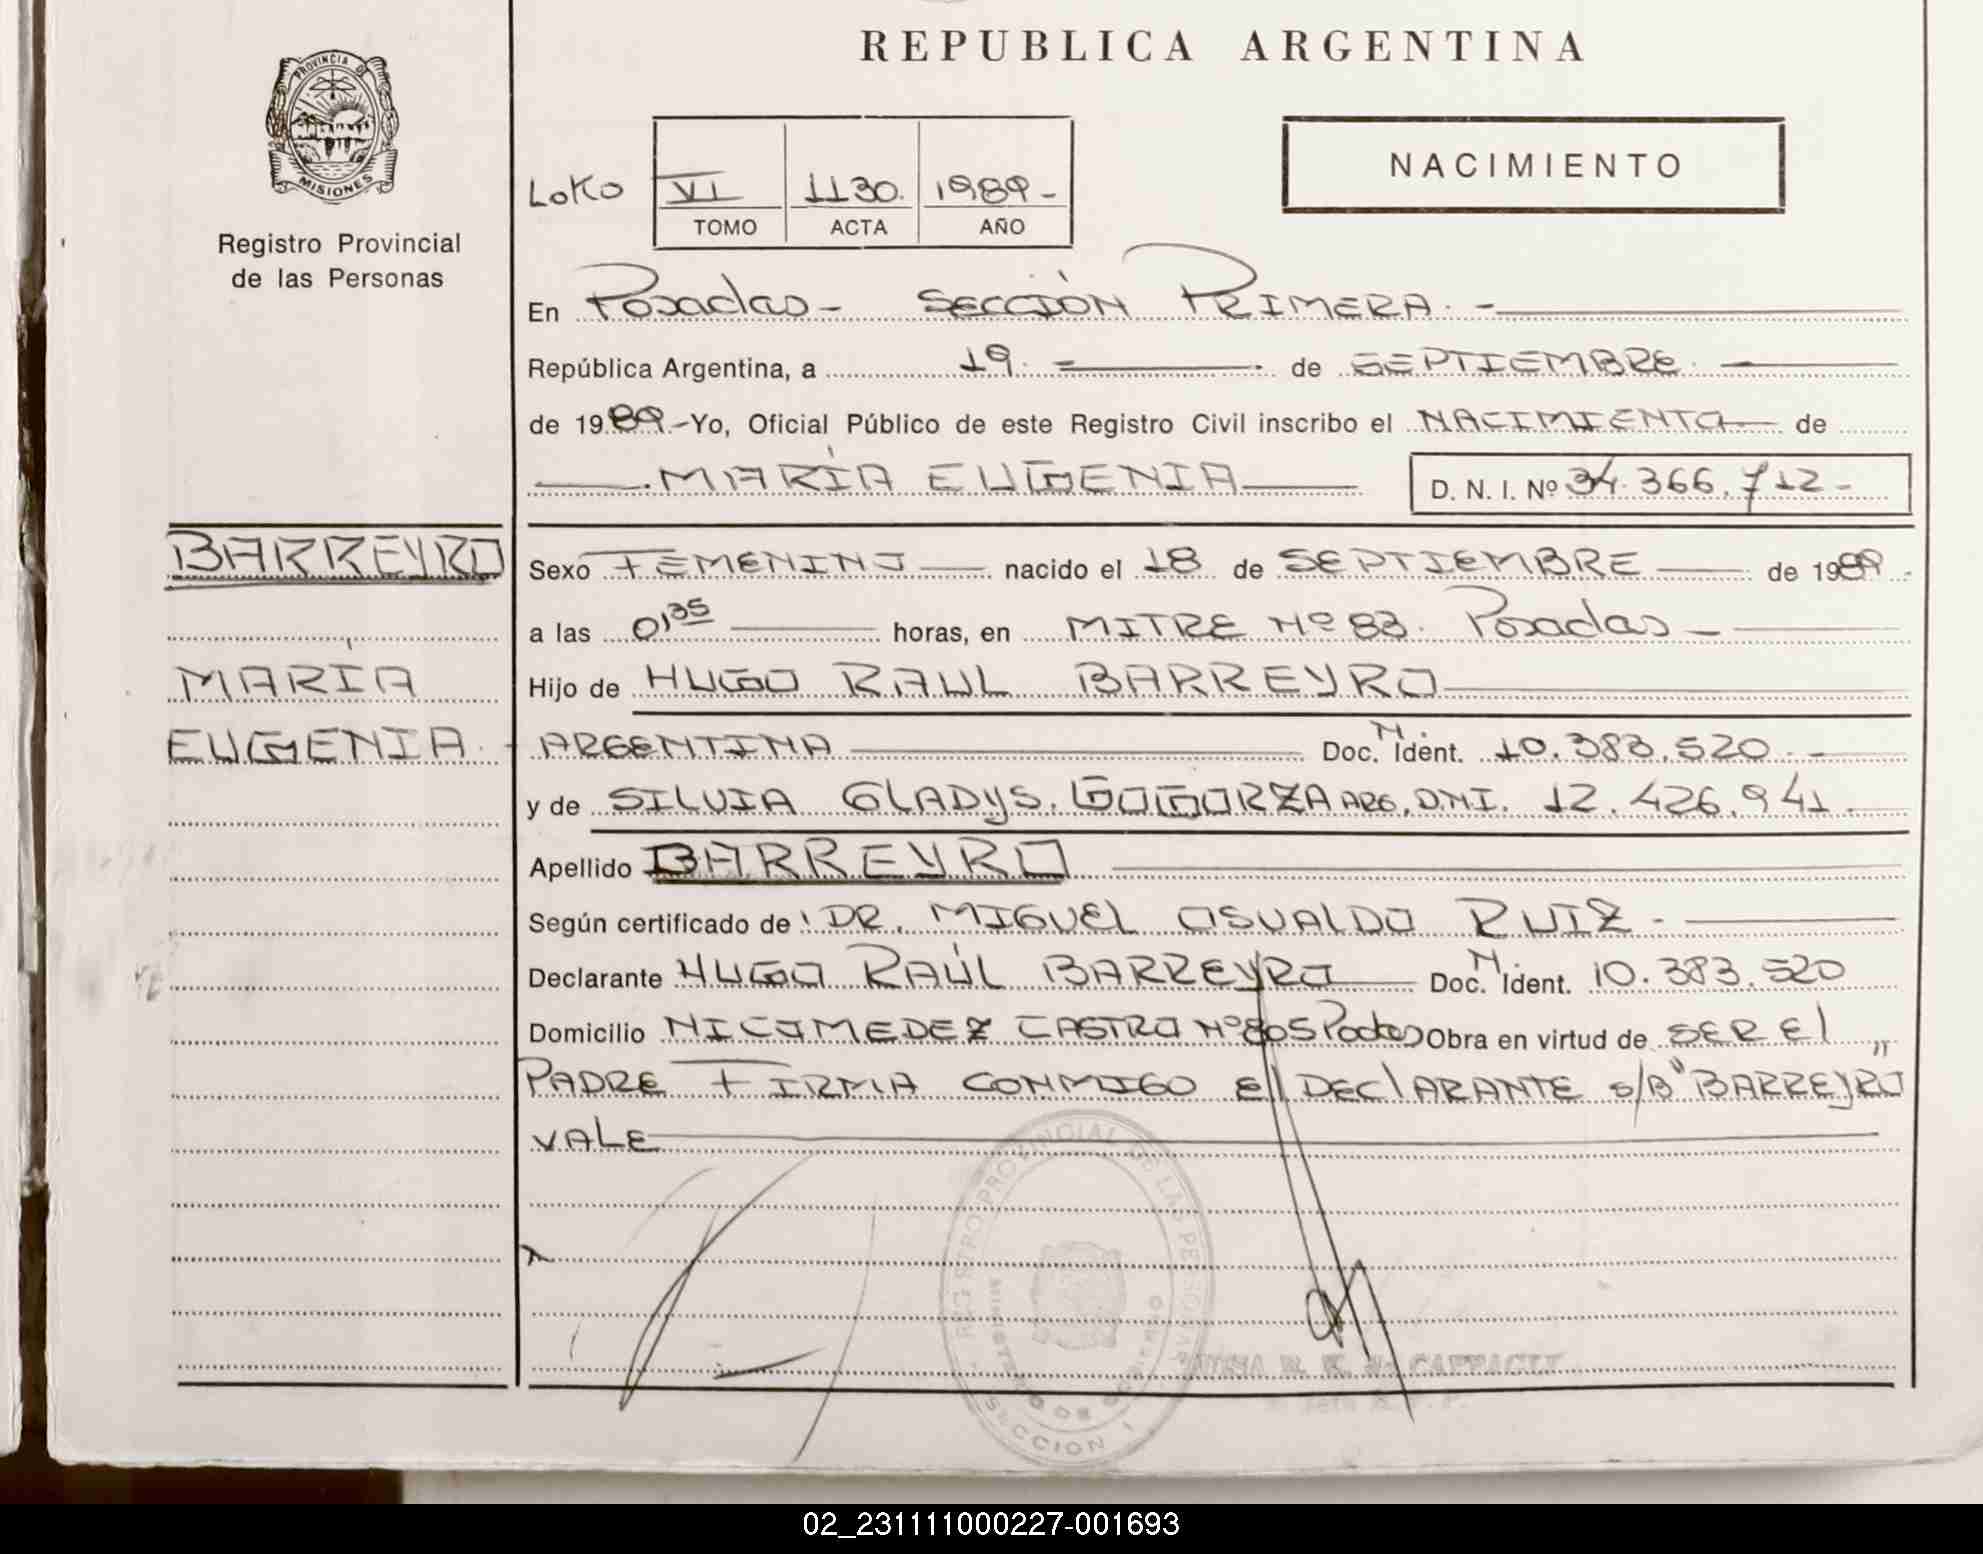 REPUBLICA ARGENTINA
PROVINCIA DE
MISIONES
Registro Provincial
de las Personas
NACIMIENTO
VI 1130. 1989-
TOMO ACTA AÑO
En Posadas - SECCIÓN PRIMERA. -
República Argentina, a 19. de SEPTIEMBRE. -
de 1989.- Yo, Oficial Público de este Registro Civil inscribo el NACIMIENTO de
MARÍA EUGENIA D. N. I. Nº 34.366.712-
BARREYRO
MARÍA
EUGENIA.
Sexo FEMENINO nacido el 18 de SEPTIEMBRE de 1989.-
a las 0,35 horas, en MITRE Nº 83. Posadas -
Hijo de HUGO RAUL BARREYRO
ARGENTINA Doc. N. Ident. 10.383.520.-
y de SILVIA GLADYS. GOGORZA ARG. D.N.I. 12.426.941.
Apellido BARREYRO
Según certificado de: DR. MIGUEL OSVALDO RUIZ.-
Declarante HUGO RAÚL BARREYRO Doc. N. Ident. 10.383.520
Domicilio NICOMEDEZ CASTRO Nº 805 Podas Obra en virtud de SER El
PADRE FIRMA CONMIGO El DEClARANTE s/B "BARREYRO"
VALE
REGISTRO PROVINCIAL DE LAS PERSONAS
MINISTERIO DE GOBIERNO
SECCION I
02_231111000227-001693